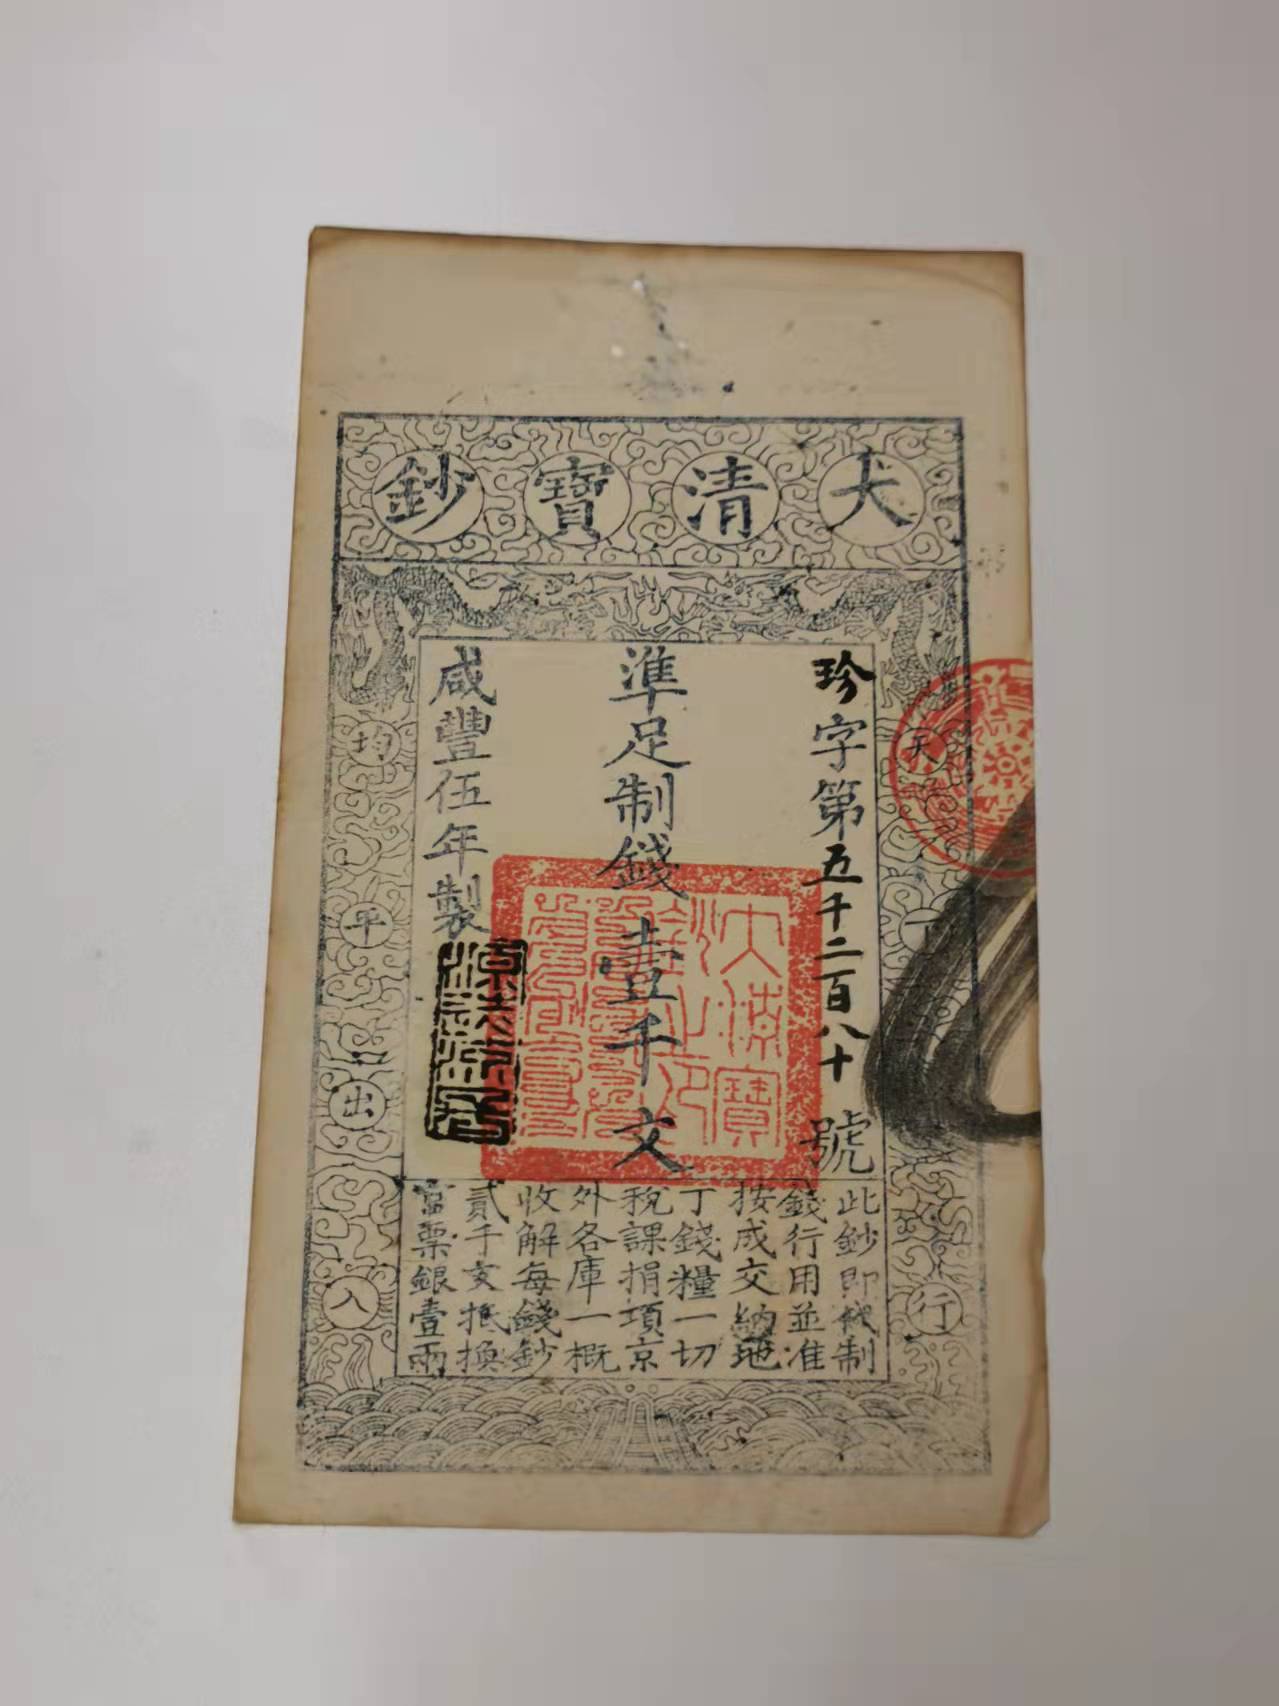 大清寶鈔
珍字第五千二百八十號
準足制錢壹千文
咸豐伍年製
天下通行
均平出入
此鈔即代制
錢行用並准
按成交納地
丁錢糧一切
稅課捐項京
外各庫一概
收解每錢鈔
貳千文抵換
官票銀壹兩
源遠流長